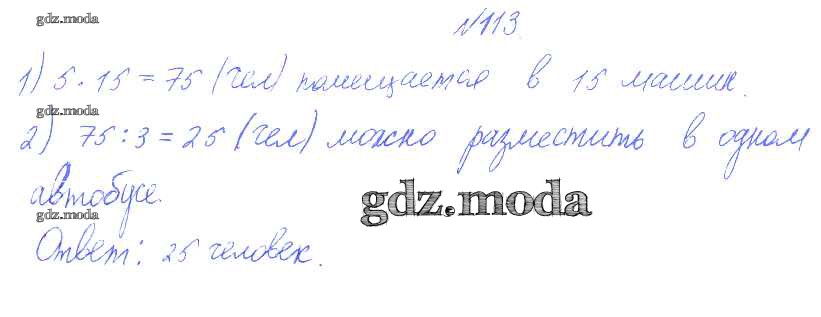 gdz.moda
№113
1) 5 · 15 = 75 (чел) помещается в 15 машин.
gdz.moda
2) 75 : 3 = 25 (чел) можно разместить в одном
автобусе.
gdz.moda
gdz.moda
Ответ: 25 человек.